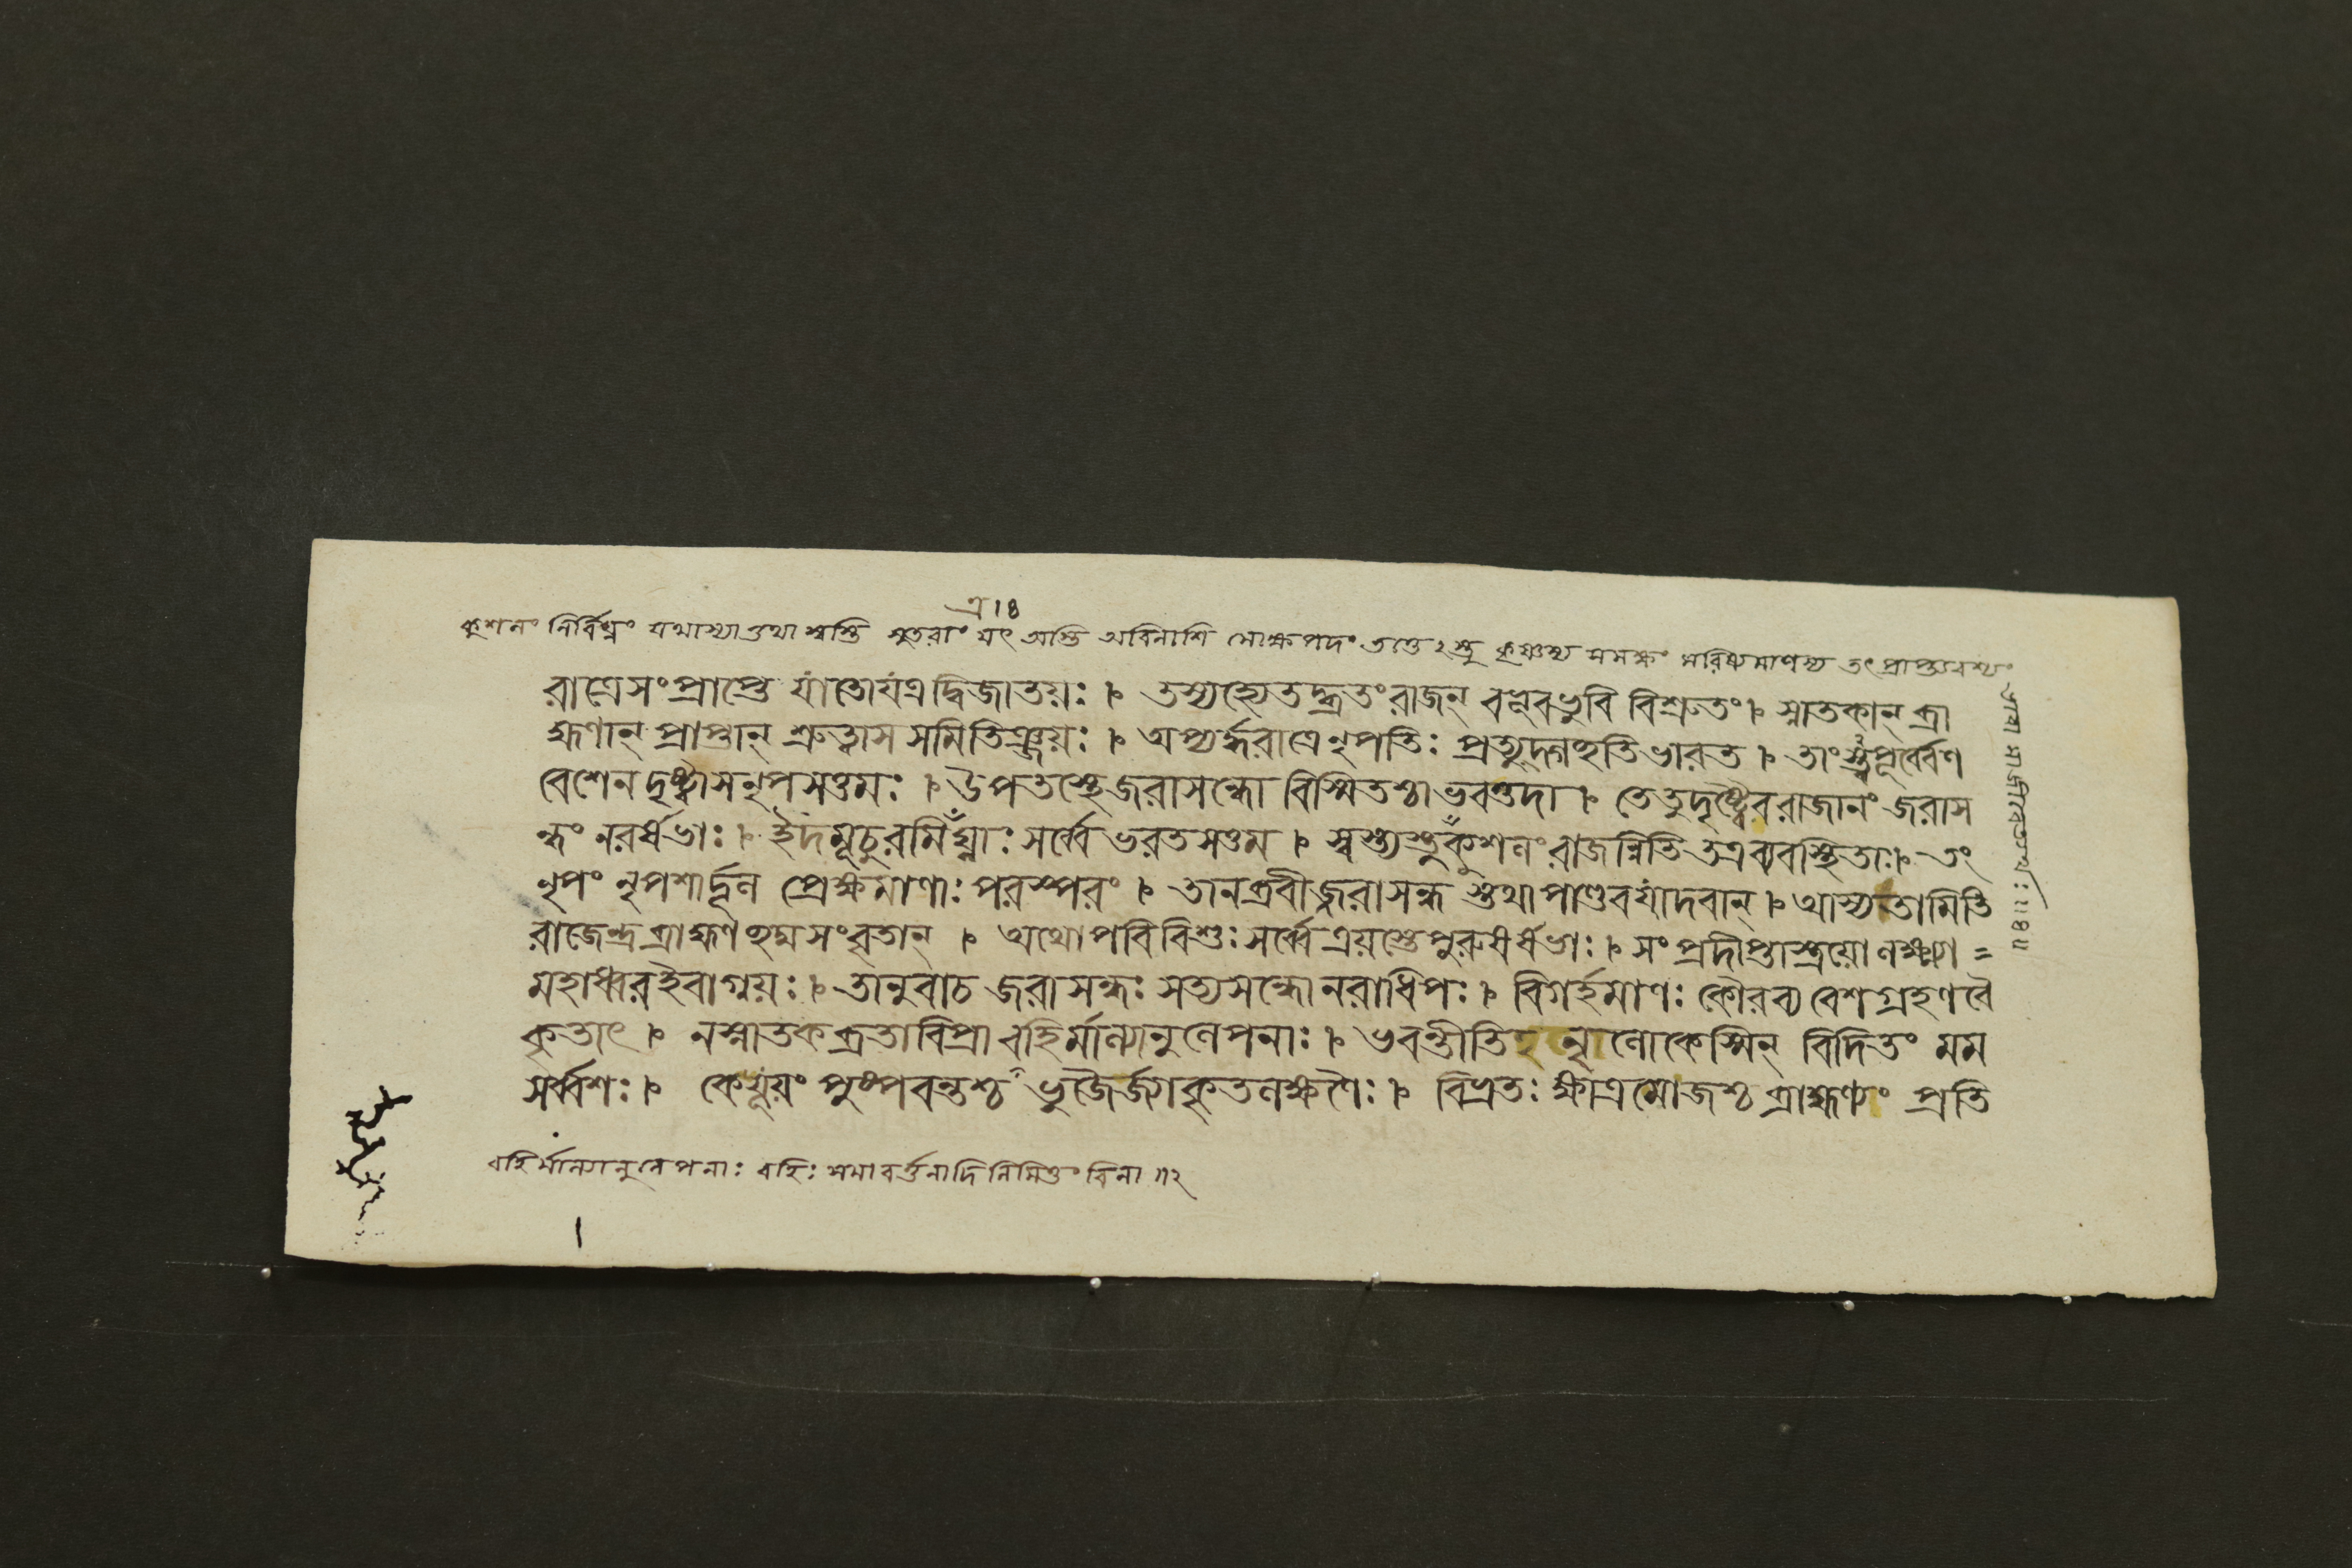 কুশলং নির্বিঘ্নং যথাস্যাত্তথা স্বস্তি সুতরাং যৎ অস্তি অবিনাশি মোক্ষপদং তত্তেঽস্তু কৃষ্ণস্য সমক্ষং মরিষ্যমাণস্য তৎ প্রাপ্ত্যবশ্যং
রাত্রেসংপ্রাপ্তে যাতোযত্রদ্বিজাতয়ঃ । তস্যহ্যেতদ্ব্রতংরাজন্ বভূবভুবি বিশ্রুতং । স্নাতকান্ ব্রা
হ্মণান্ প্রাপ্তান্ শ্রুত্বাস সমিতিঞ্জয়ঃ । অপ্যর্দ্ধরাত্রেনৃপতিঃ প্রত্যুদ্গচ্ছতিভারত । তাংস্ত্বপূর্ব্বেণ
বেশেন দৃষ্ট্বাসনৃপসত্তমঃ । উপতস্থেজরাসন্ধো বিস্মিতশ্চাভবত্তদা । তেতুদৃষ্ট্বৈবরাজানং জরাস
ন্ধং নরর্ষভাঃ । ইদমূচুরমিত্রঘ্নাঃ সর্ব্বে ভরতসত্তম । স্বস্ত্যস্তুকুশলংরাজন্নিতি তত্রব্যবস্থিতাঃ । তং
নৃপং নৃপশার্দ্দূল প্রেক্ষমাণাঃ পরস্পরং । তানব্রবীজ্জরাসন্ধ স্তথাপাণ্ডবযাদবান্ । আস্যতামিতি
রাজেন্দ্রব্রাহ্মণচ্ছদ্মসংবৃতান্ । অথোপবিবিশুঃ সর্ব্বে ত্রয়স্তেপুরুষর্ষভাঃ । সংপ্রদীপ্তাস্ত্রয়োলক্ষ্ম্যা =
মহাধ্বরইবাগ্নয়ঃ । তানুবাচ জরাসন্ধঃ সত্যসন্ধোনরাধিপঃ । বিগর্হমাণঃ কৌরব্য বেশগ্রহণবৈ
কৃতাৎ । নস্নাতকব্রতাবিপ্রা বহির্মাল্যানুলেপনাঃ । ভবন্তীতি নৃলোকেস্মিন্ বিদিতং মম
সর্ব্বশঃ । কেযূয়ং পুষ্পবন্তশ্চ ভুজৈর্জ্যাকৃতলক্ষণৈঃ । বিভ্রতঃ ক্ষাত্রমোজশ্চ ব্রাহ্মণ্যং প্রতি
বহির্মাল্যানুলেপনাঃ বহিঃ সমাবর্ত্তনাদি নিমিত্তং বিনা ॥২